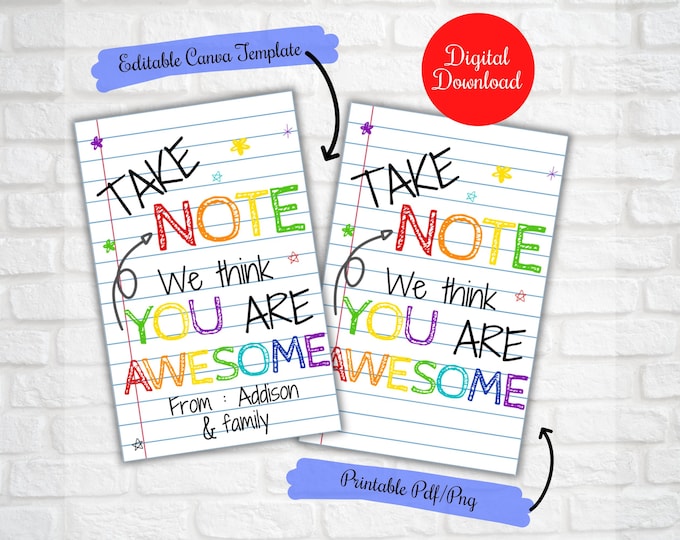 Editable Canva Template
Digital
Download
TAKE
NOTE
We think
YOU ARE
AWESOME
From : Addison
& family
TAKE
NOTE
We think
YOU ARE
AWESOME
Printable Pdf/Png